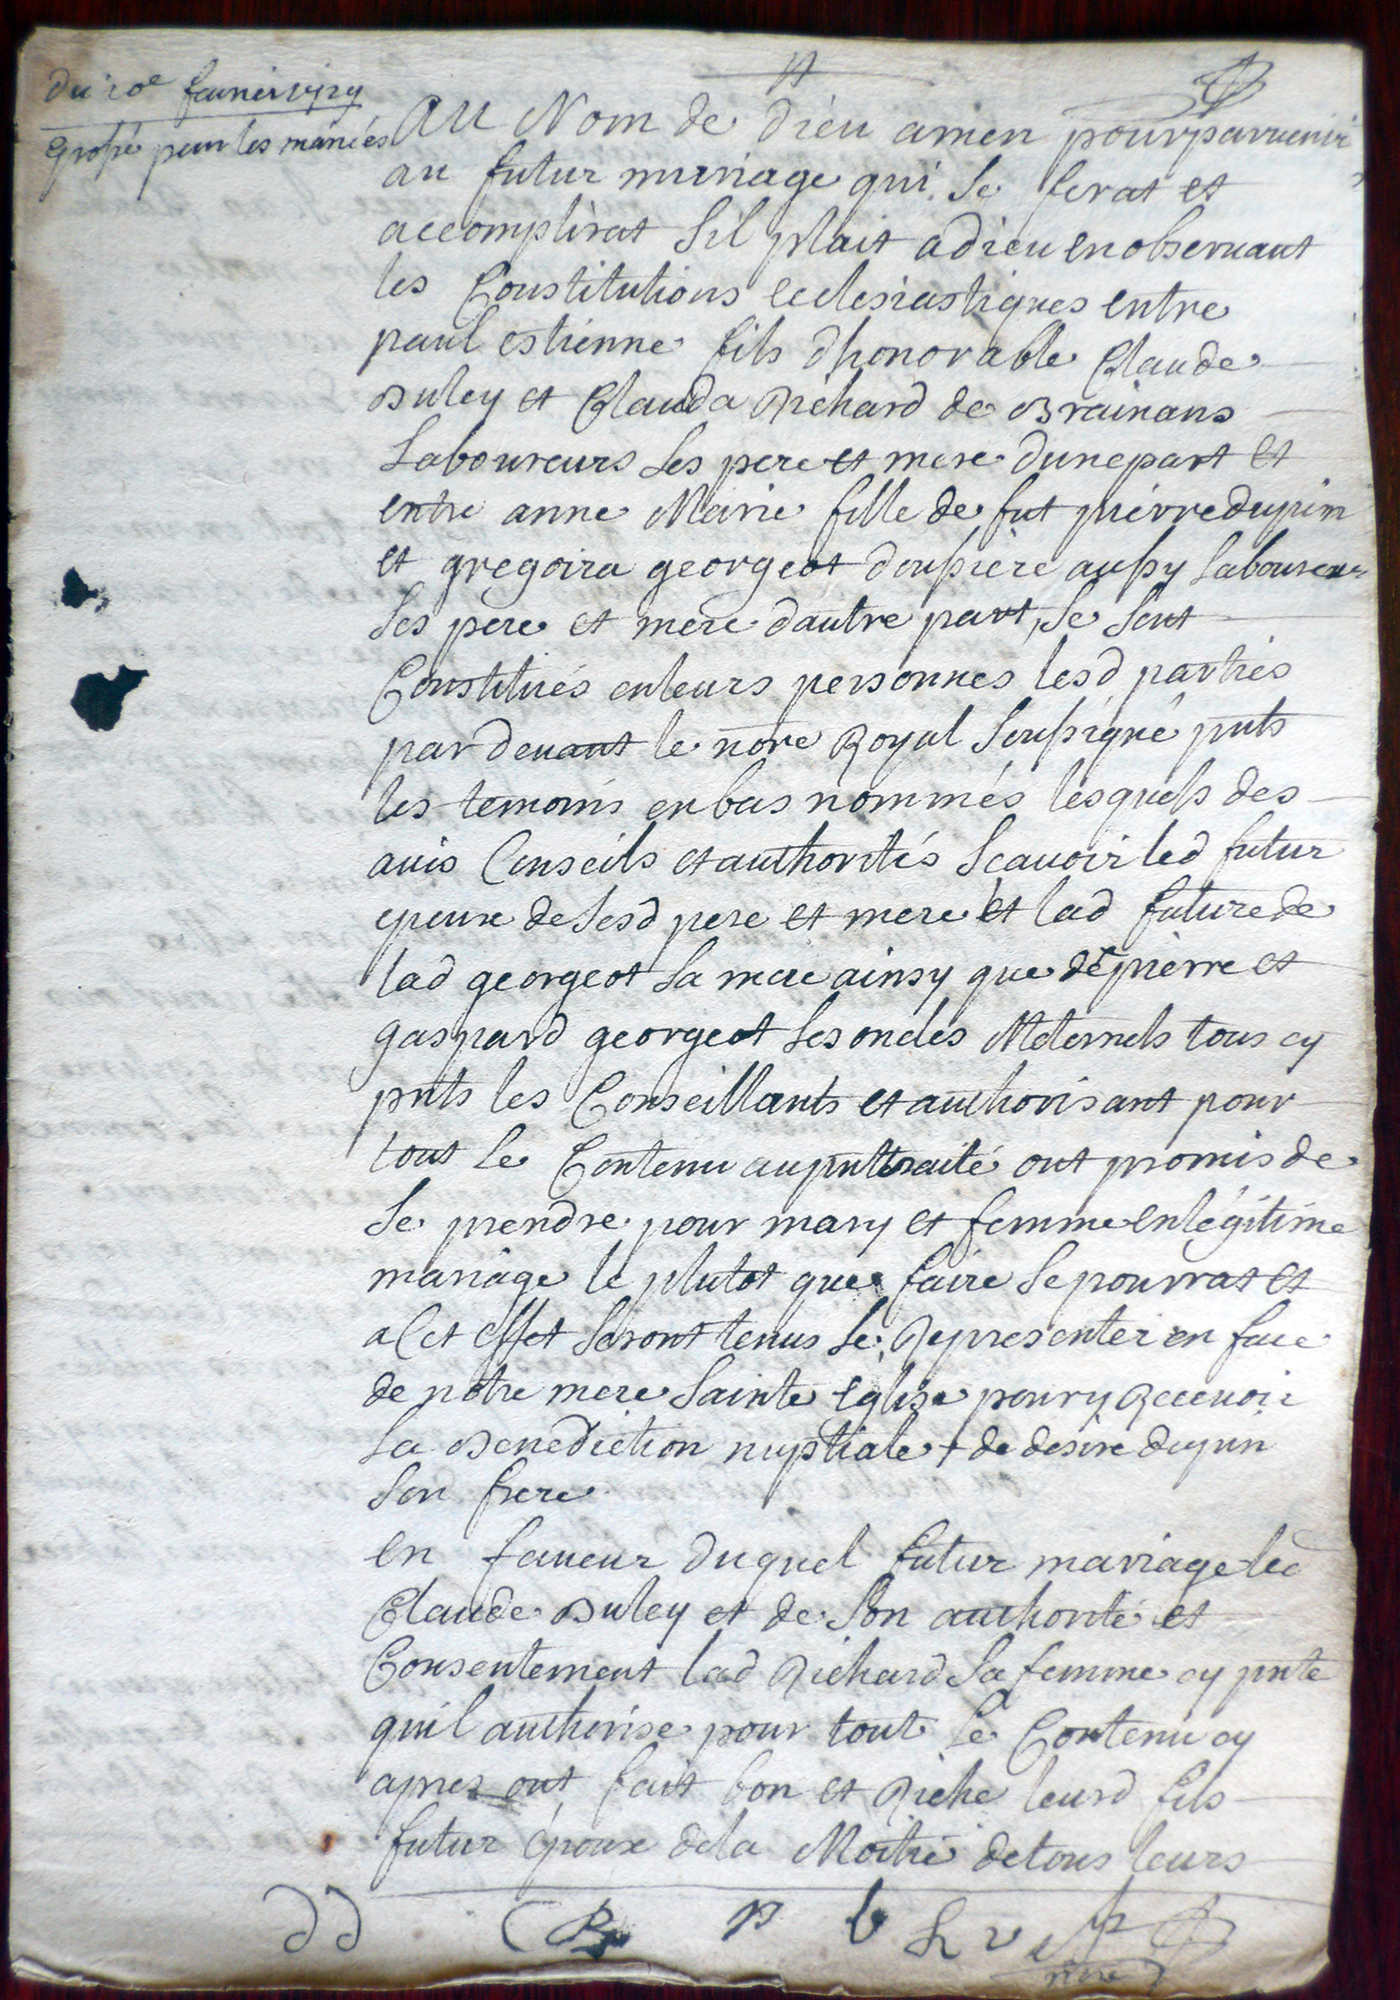 du 20e
grossé pour les mariés
Au Nom de dieu amen pour parvenir
au futur mariage qui se ferat et
accomplirat sil plait a dieu en observant
les Constitutions ecclesiastiques entre
paul estienne fils dhonorable Claude
Buley et Clauda Richard de Brainans
Laboureurs ses pere et mere dunepart et
entre anne Marie fille de fut pierre dupin
et gregoira georgeot doussiere aussy Laboureur
ses pere et mere dautre part, se sont
Constitués en leurs personnes lesd parties
pardevant le nore Royal soussigné pnts
les temoins en bas nommés lesquels des
avis Conseils et authorités scavoir led futur
epoux de sesd pere et mere et lad future de
lad georgeot sa mere ainsy que de pierre et
gaspard georgeot ses oncles Maternels tous cy
pnts les Conseillants et authorisant pour
tout le Contenu au pnt traité ont promis de
se prendre pour mary et femme en légitime
mariage le plutot que faire se pourrat et
a Cet effet seront tenus se Representer en face
de notre mere sainte eglise pour y Recevoir
La Benediction nuptiale + de desire dupin
son frere
en faveur duquel futur mariage led
Claude Buley et de son authorité et
Consentement lad Richard sa femme cy pnte
quil authorise pour tout le Contenu cy
apres ont fait bon et Riche leurd fils
futur époux dela Moitié de tous leurs